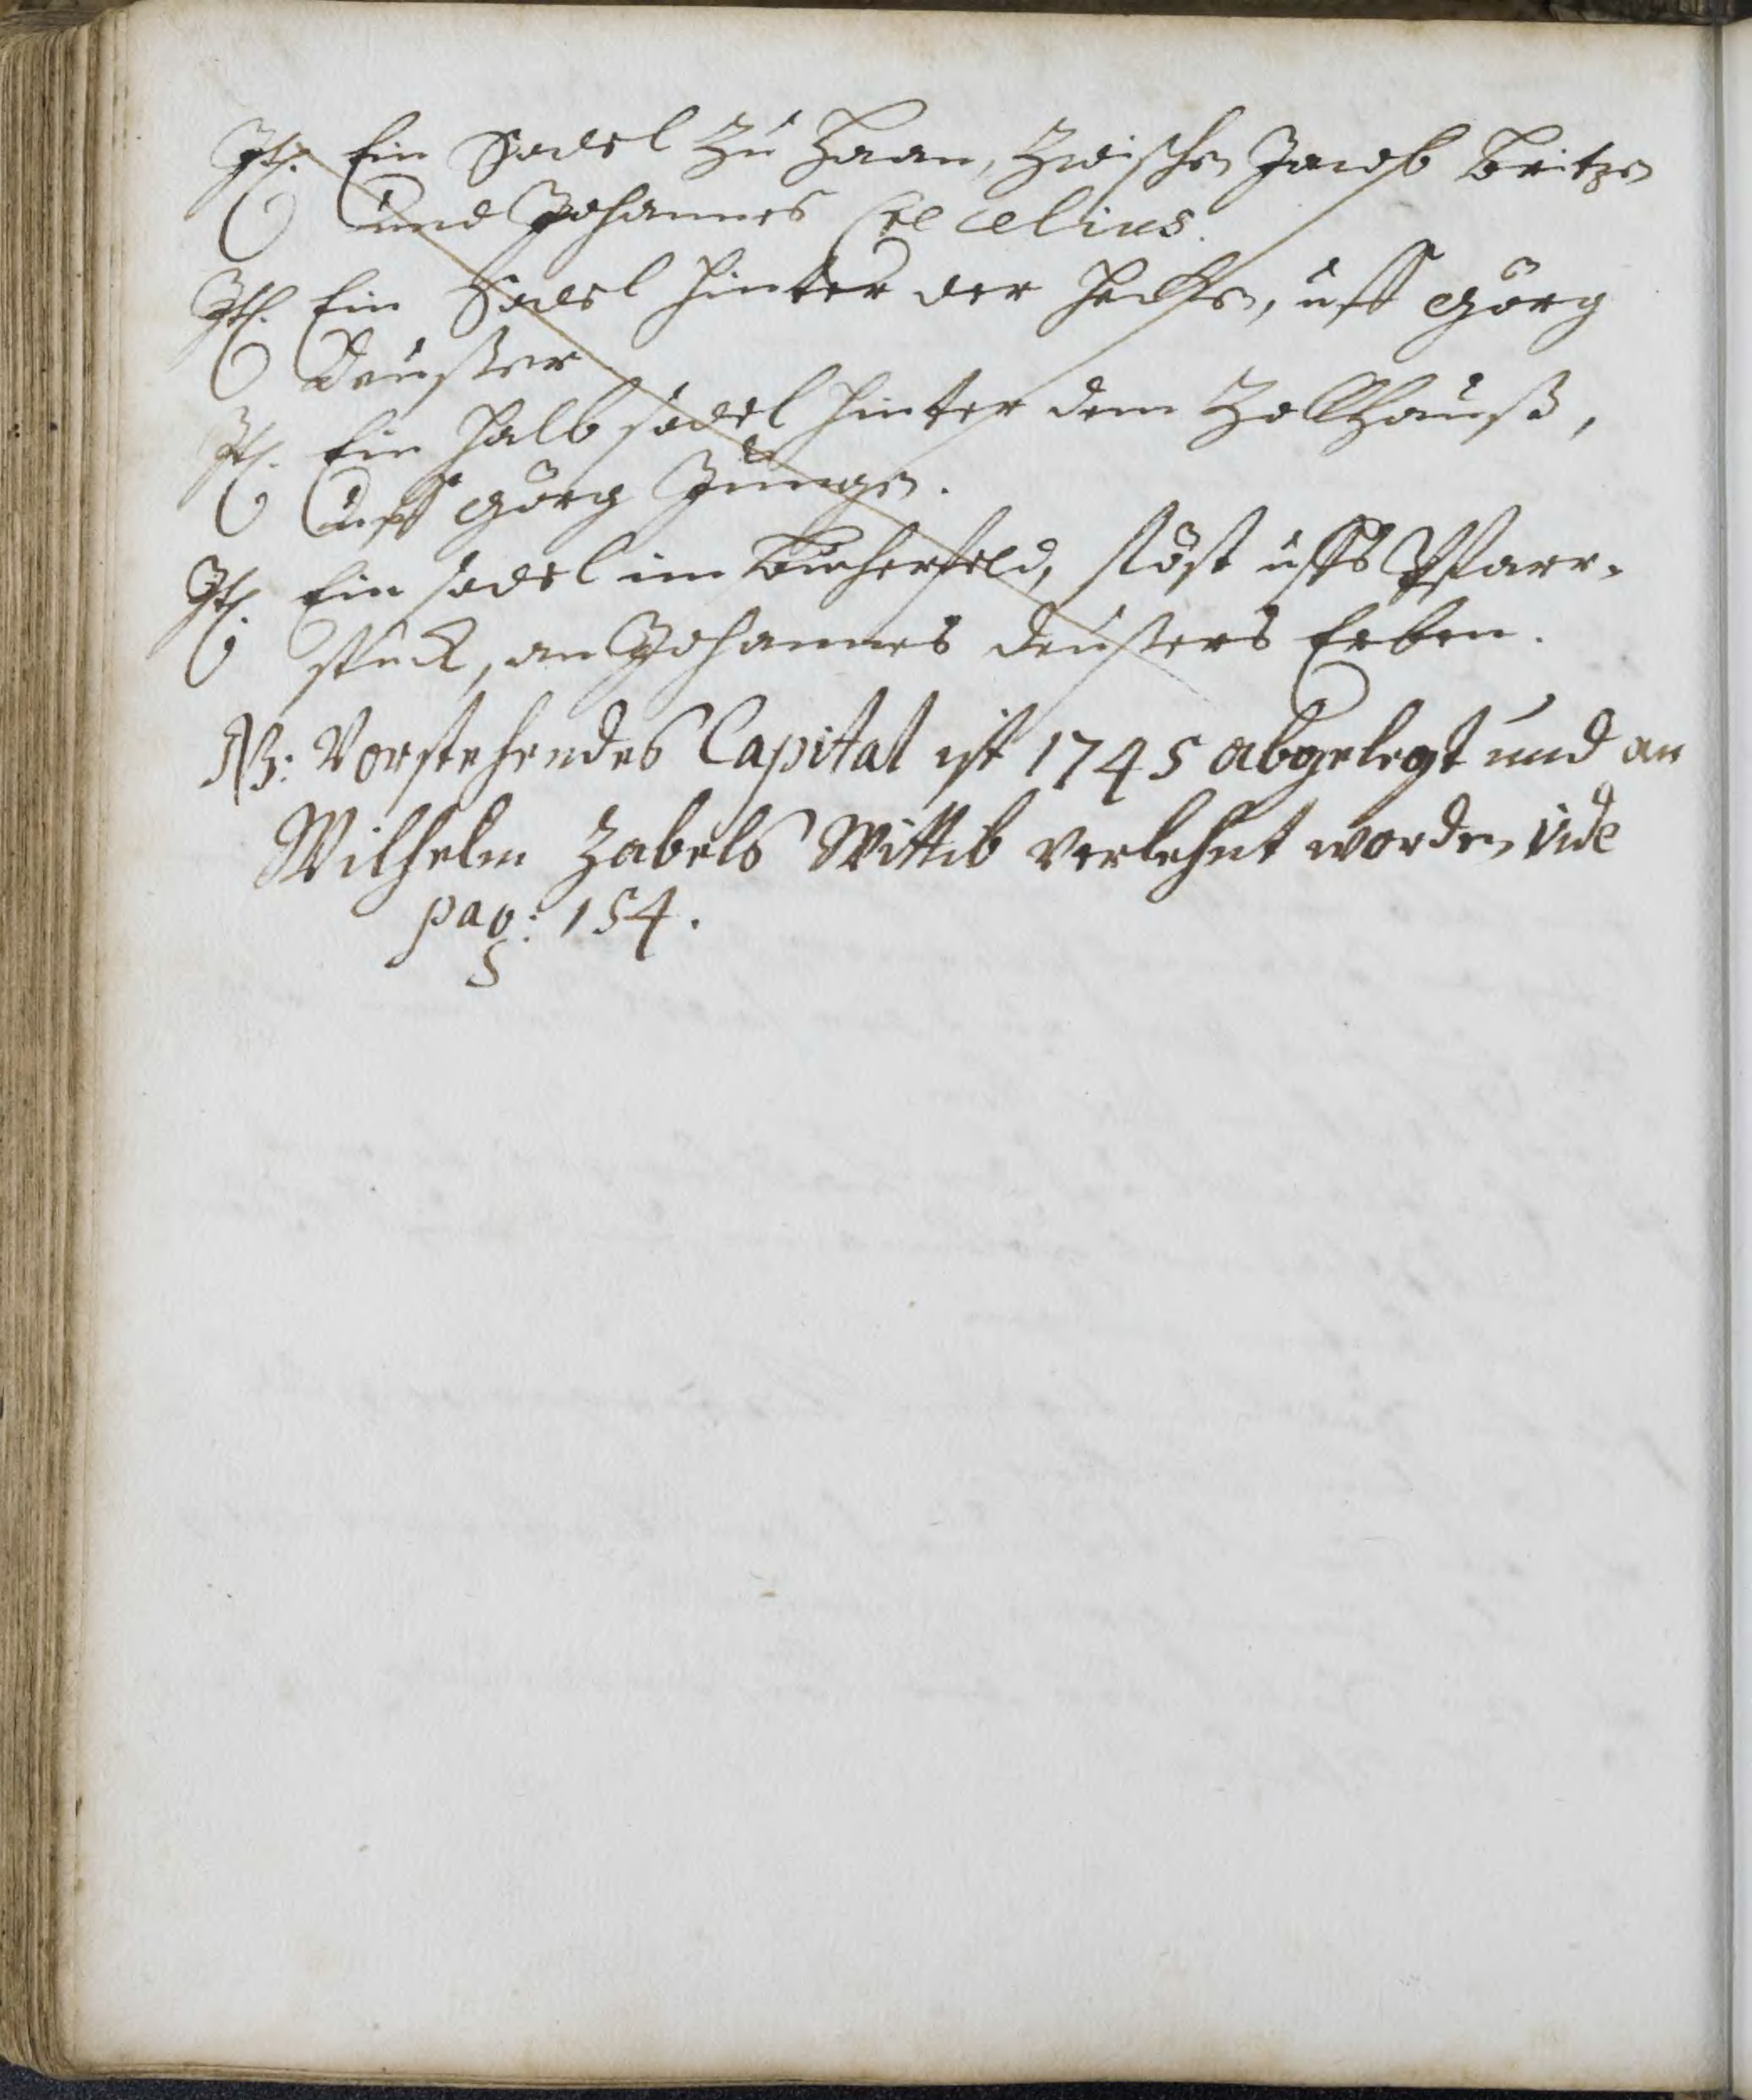 Jt. Ein Sodel zu Haan, zwischen Jacob Britzen
und Johannes Cæcelius.
Jt. Ein Sodel hinter der Hecken, uff Görg
Deusser
Jt. Ein halb sodel hinter dem Zollhauß,
uff Görg Jungen.
Jt. Ein sodel im Bücherfeld, stöst uffs Pfarr-
stück, an Johannes Deussers Erben.
NB: Vorstehendes Capital ist 1745 abgelegt und an
Wilhelm Zabels Wittib verlehnt worden, vide
pag: 154.